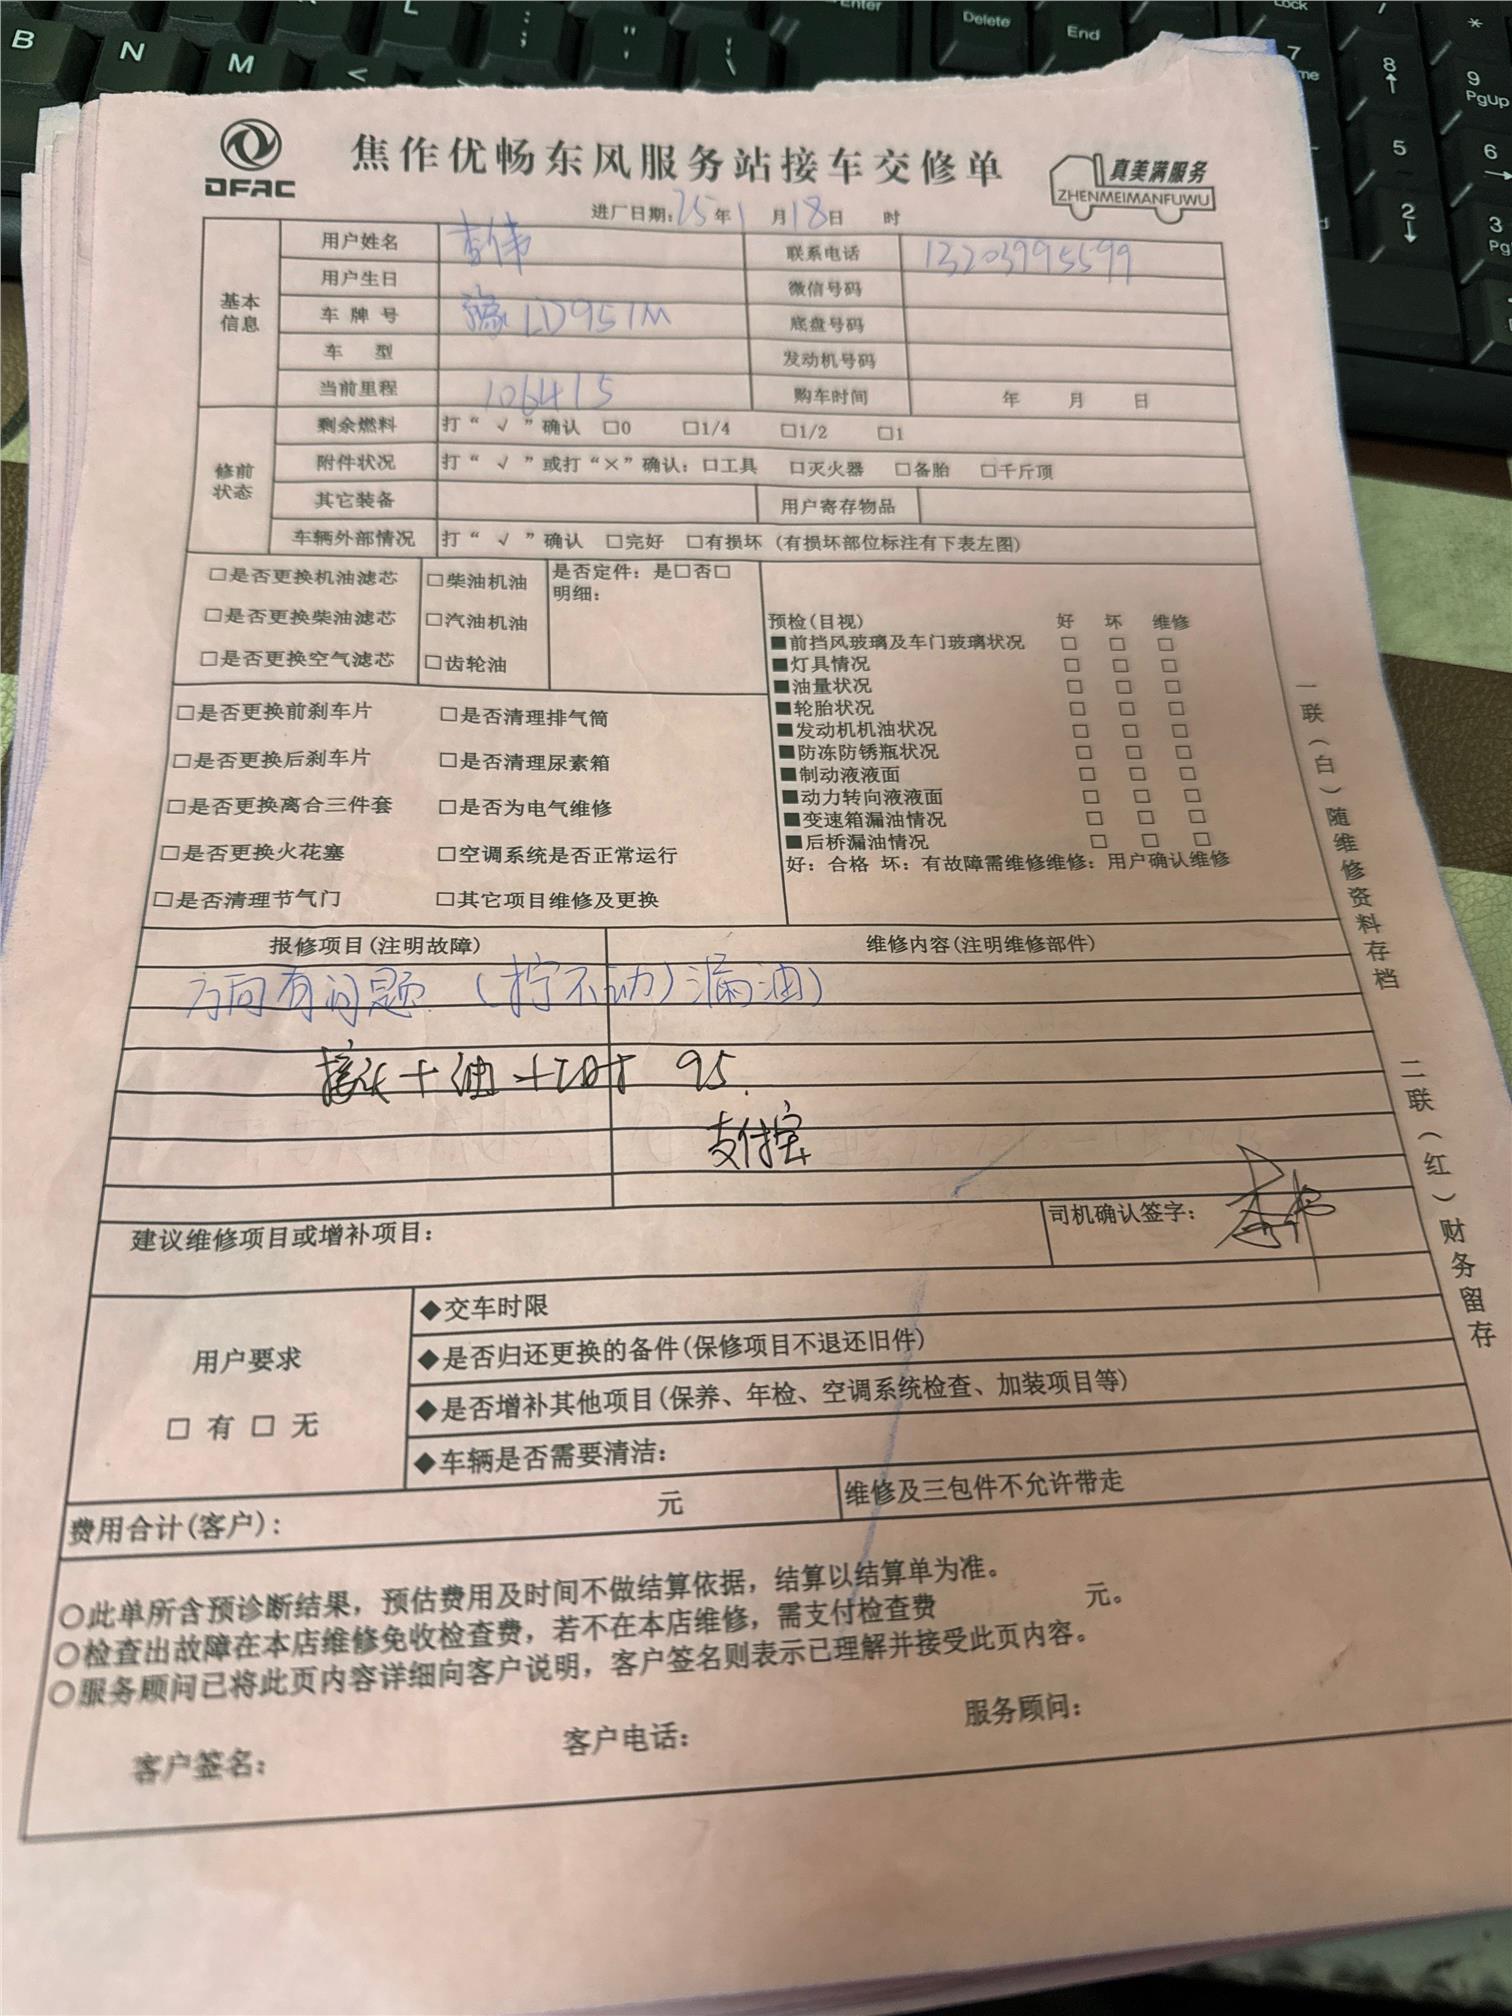 B N M L < ; : " ' Enter Delete End Lock 7 8 9 PgUp 5 6 2 3
DFAC
焦作优畅东风服务站接车交修单
真美满服务
ZHENMEIMANFUWU
进厂日期:25年1月18日 时
基本信息
用户姓名 李伟 联系电话 13203995599
用户生日 微信号码
车牌号 豫LD957M 底盘号码
车 型 发动机号码
当前里程 106415 购车时间 年 月 日
修前状态
剩余燃料 打“√”确认 □0 □1/4 □1/2 □1
附件状况 打“√”或打“×”确认:□工具 □灭火器 □备胎 □千斤顶
其它装备 用户寄存物品
车辆外部情况 打“√”确认 □完好 □有损坏(有损坏部位标注有下表左图)
□是否更换机油滤芯 □柴油机油 是否定件:是□否□
明细:
□是否更换柴油滤芯 □汽油机油
□是否更换空气滤芯 □齿轮油
□是否更换前刹车片 □是否清理排气筒
□是否更换后刹车片 □是否清理尿素箱
□是否更换离合三件套 □是否为电气维修
□是否更换火花塞 □空调系统是否正常运行
□是否清理节气门 □其它项目维修及更换
预检(目视) 好 坏 维修
■前挡风玻璃及车门玻璃状况 □ □ □
■灯具情况 □ □ □
■油量状况 □ □ □
■轮胎状况 □ □ □
■发动机机油状况 □ □ □
■防冻防锈瓶状况 □ □ □
■制动液液面 □ □ □
■动力转向液液面 □ □ □
■变速箱漏油情况 □ □ □
■后桥漏油情况 □ □ □
好:合格 坏:有故障需维修维修:用户确认维修
报修项目(注明故障) 维修内容(注明维修部件)
方向有问题(拧不动)漏油)
接头+油+工时 95.
支付宝
建议维修项目或增补项目: 司机确认签字: 李伟
用户要求
□ 有 □ 无
◆交车时限
◆是否归还更换的备件(保修项目不退还旧件)
◆是否增补其他项目(保养、年检、空调系统检查、加装项目等)
◆车辆是否需要清洁:
费用合计(客户): 元 维修及三包件不允许带走
○此单所含预诊断结果，预估费用及时间不做结算依据，结算以结算单为准。
○检查出故障在本店维修免收检查费，若不在本店维修，需支付检查费 元。
○服务顾问已将此页内容详细向客户说明，客户签名则表示已理解并接受此页内容。
客户签名: 客户电话: 服务顾问:
一联(白)随维修资料存档 二联(红)财务留存